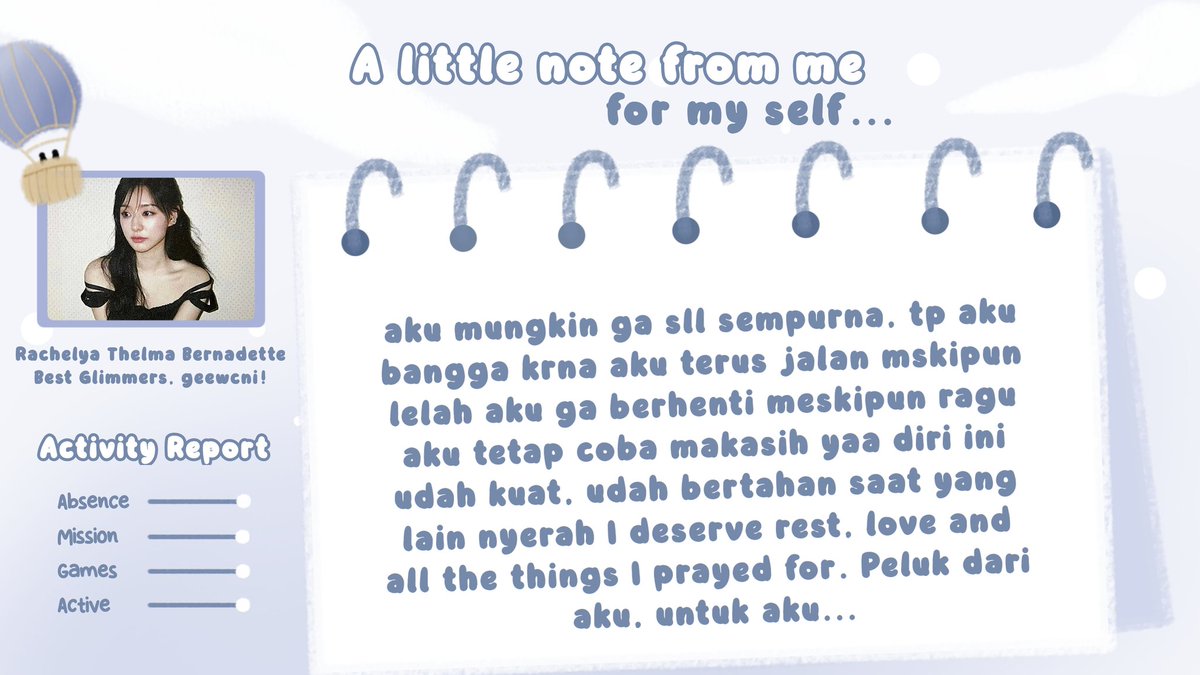 A little note from me
for my self...
Rachelya Thelma Bernadette
Best Glimmers, geewcni!
Activity Report
Absence
Mission
Games
Active
aku mungkin ga sll sempurna, tp aku
bangga krna aku terus jalan mskipun
lelah aku ga berhenti meskipun ragu
aku tetap coba makasih yaa diri ini
udah kuat, udah bertahan saat yang
lain nyerah I deserve rest, love and
all the things I prayed for. Peluk dari
aku, untuk aku...